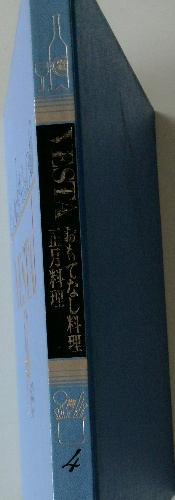 VESTA
おもてなし料理
正月料理
4